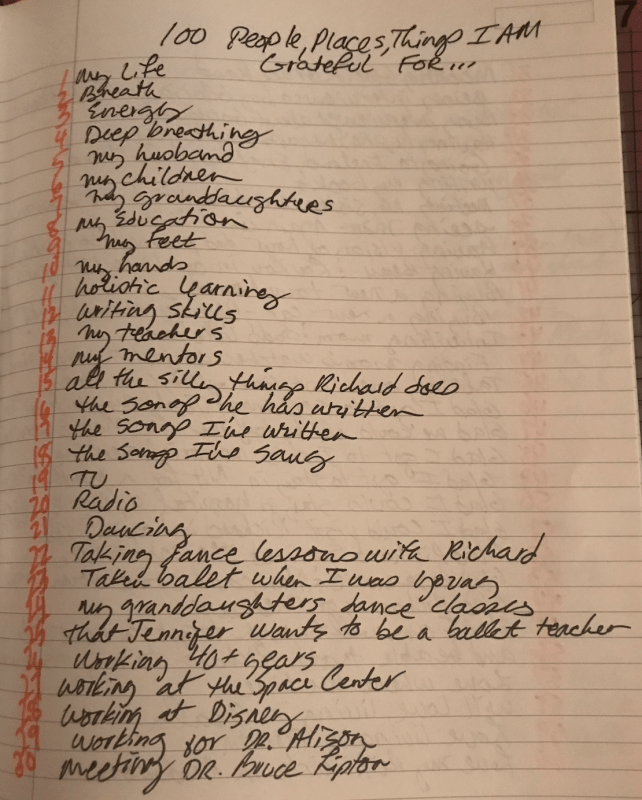 100 People, Places, Things I AM
Grateful FOR...
1 my Life
2 Breath
3 Energy
4 Deep breathing
5 my husband
6 my children
7 my granddaughters
8 my Education
9 my feet
10 my hands
11 holistic learning
12 writing skills
13 my teachers
14 my mentors
15 all the silly things Richard does
16 the songs he has written
17 the songs I've written
18 the songs I've sang
19 TV
20 Radio
21 Dancing
22 Taking dance lessons with Richard
23 Taken balet when I was young
24 my granddaughters dance classes
25 that Jennifer wants to be a ballet teacher
26 Working 40+ years
27 working at the Space Center
28 working at Disney
29 working for DR. Alison
30 meeting DR. Bruce Lipton
7